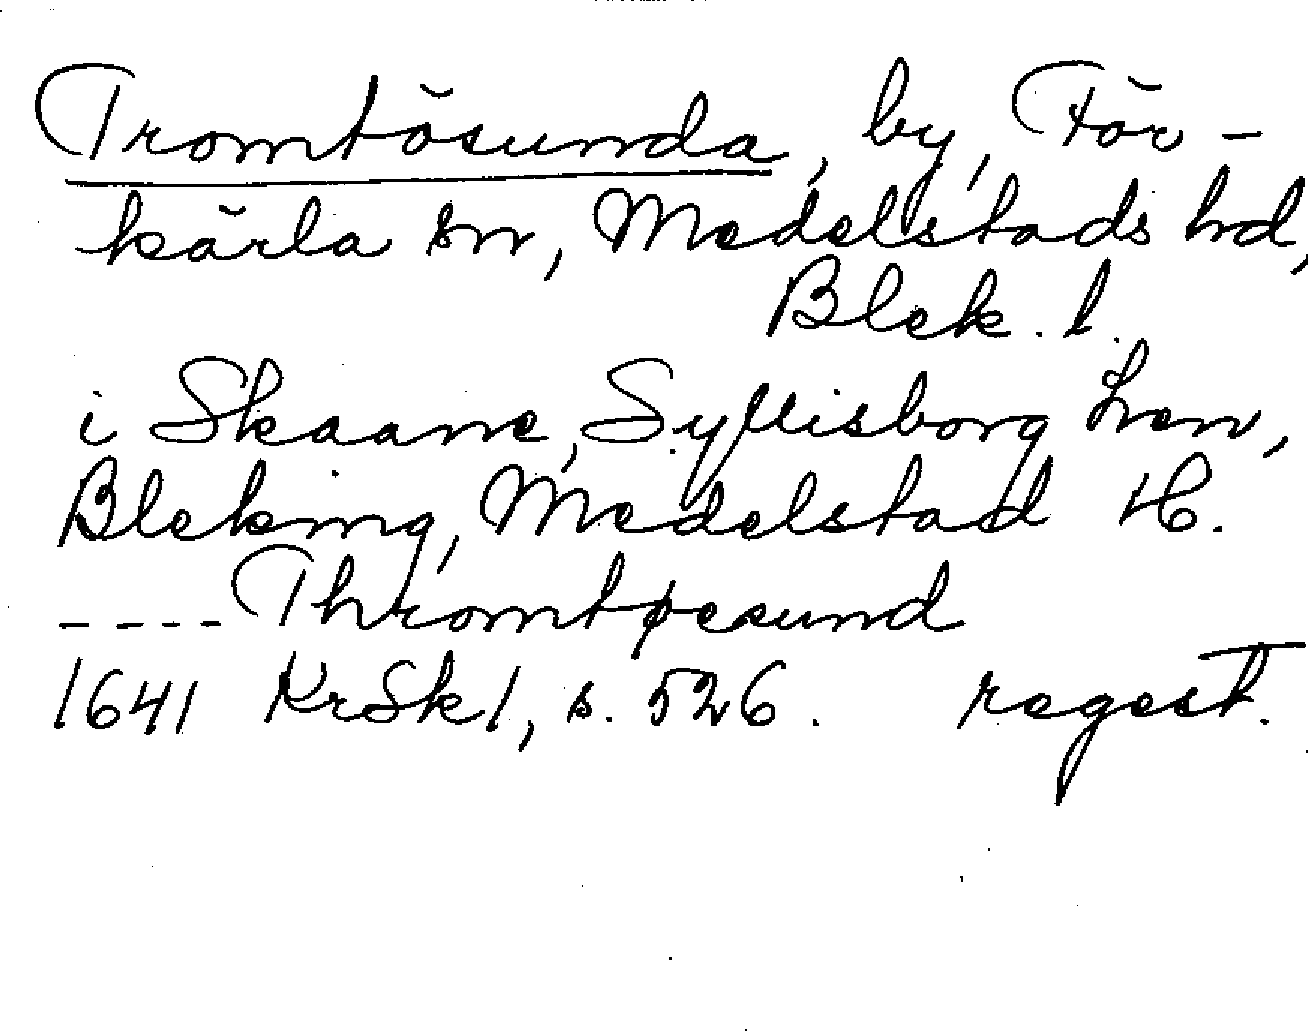 Tromtösunda, by, För-
kärla sn, Medelstads hd,
Blek. l.
i Skaane, Syllisborg Len,
Bleking, Medelstad H.
---- Thromtøesund
1641 KrSk1, s. 526. regest.